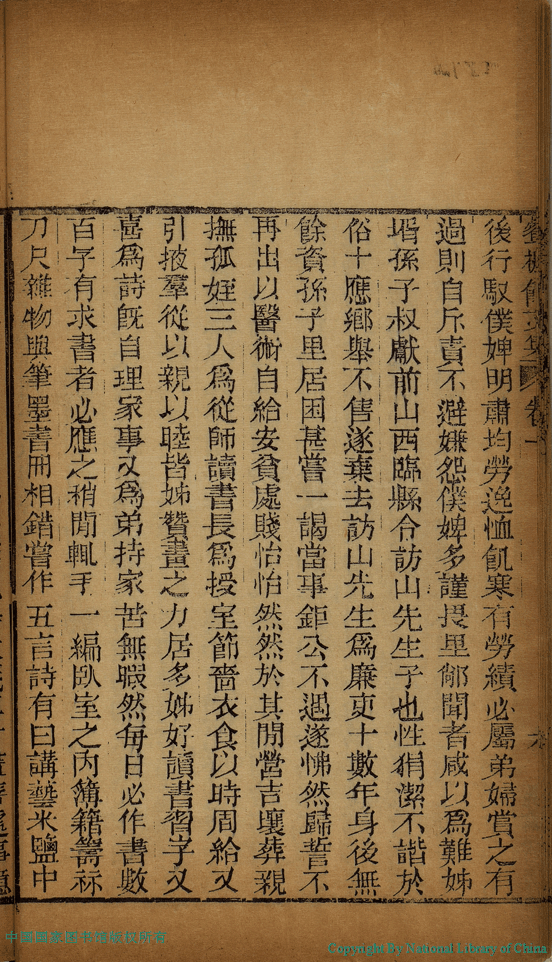 後行馭僕婢明肅均勞逸恤飢寒有勞績必屬弟婦賞之有
過則自斥責不避嫌怨僕婢多謹畏里鄰聞者咸以爲難姊
壻孫子叔獻前山西臨縣令訪山先生子也性狷潔不諧於
俗十應鄉舉不售遂棄去訪山先生爲廉吏十數年身後無
餘資孫子里居困甚嘗一謁當事鉅公不遇遂怫然歸誓不
再出以醫術自給安貧處賤怡怡然然於其閒營吉壤葬親
撫孤姪三人爲從師讀書長爲授室節嗇衣食以時周給又
引掖羣從以親以睦皆姊贊畫之力居多姊好讀書習字又
喜爲詩旣自理家事又爲弟持家苦無暇然每日必作書數
百字有求書者必應之稍閒輒手一編臥室之內簿籍箸
刀尺雜物與筆墨書冊相錯嘗作五言詩有曰講藝米鹽中
六
Copyright by National Library of China